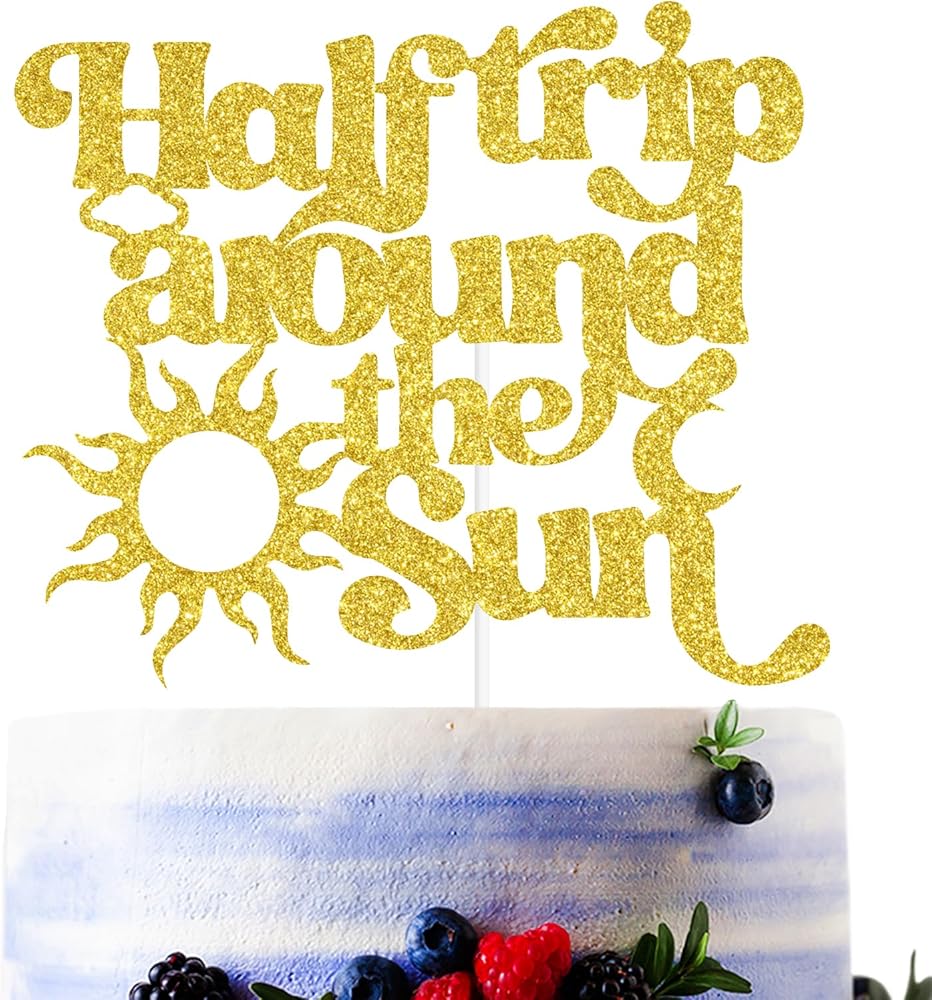 Half trip
around
the
Sun